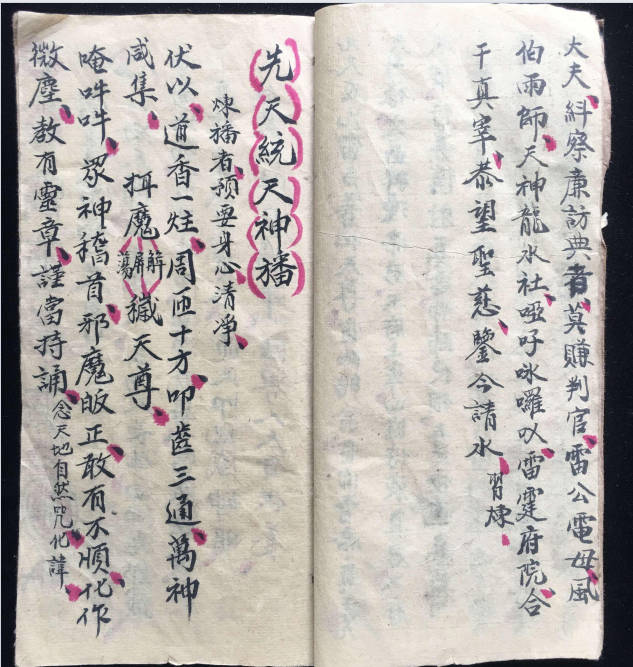 大夫糾察廉訪典者莫賺判官雷公電母風
伯雨師天神龍水社啞吽咏囉以雷霆府院合
干真宰恭望聖慈鑒今請水習煉
先天統天神旛
煉播者預要身心清淨
伏以道香一炷周匝十方叩齒三通萬神
咸集拜魔解屏蕩穢天尊
唵吽吽眾神稽首邪魔皈正敢有不順化作
微塵教有靈章謹當持誦念天地自然咒化諱